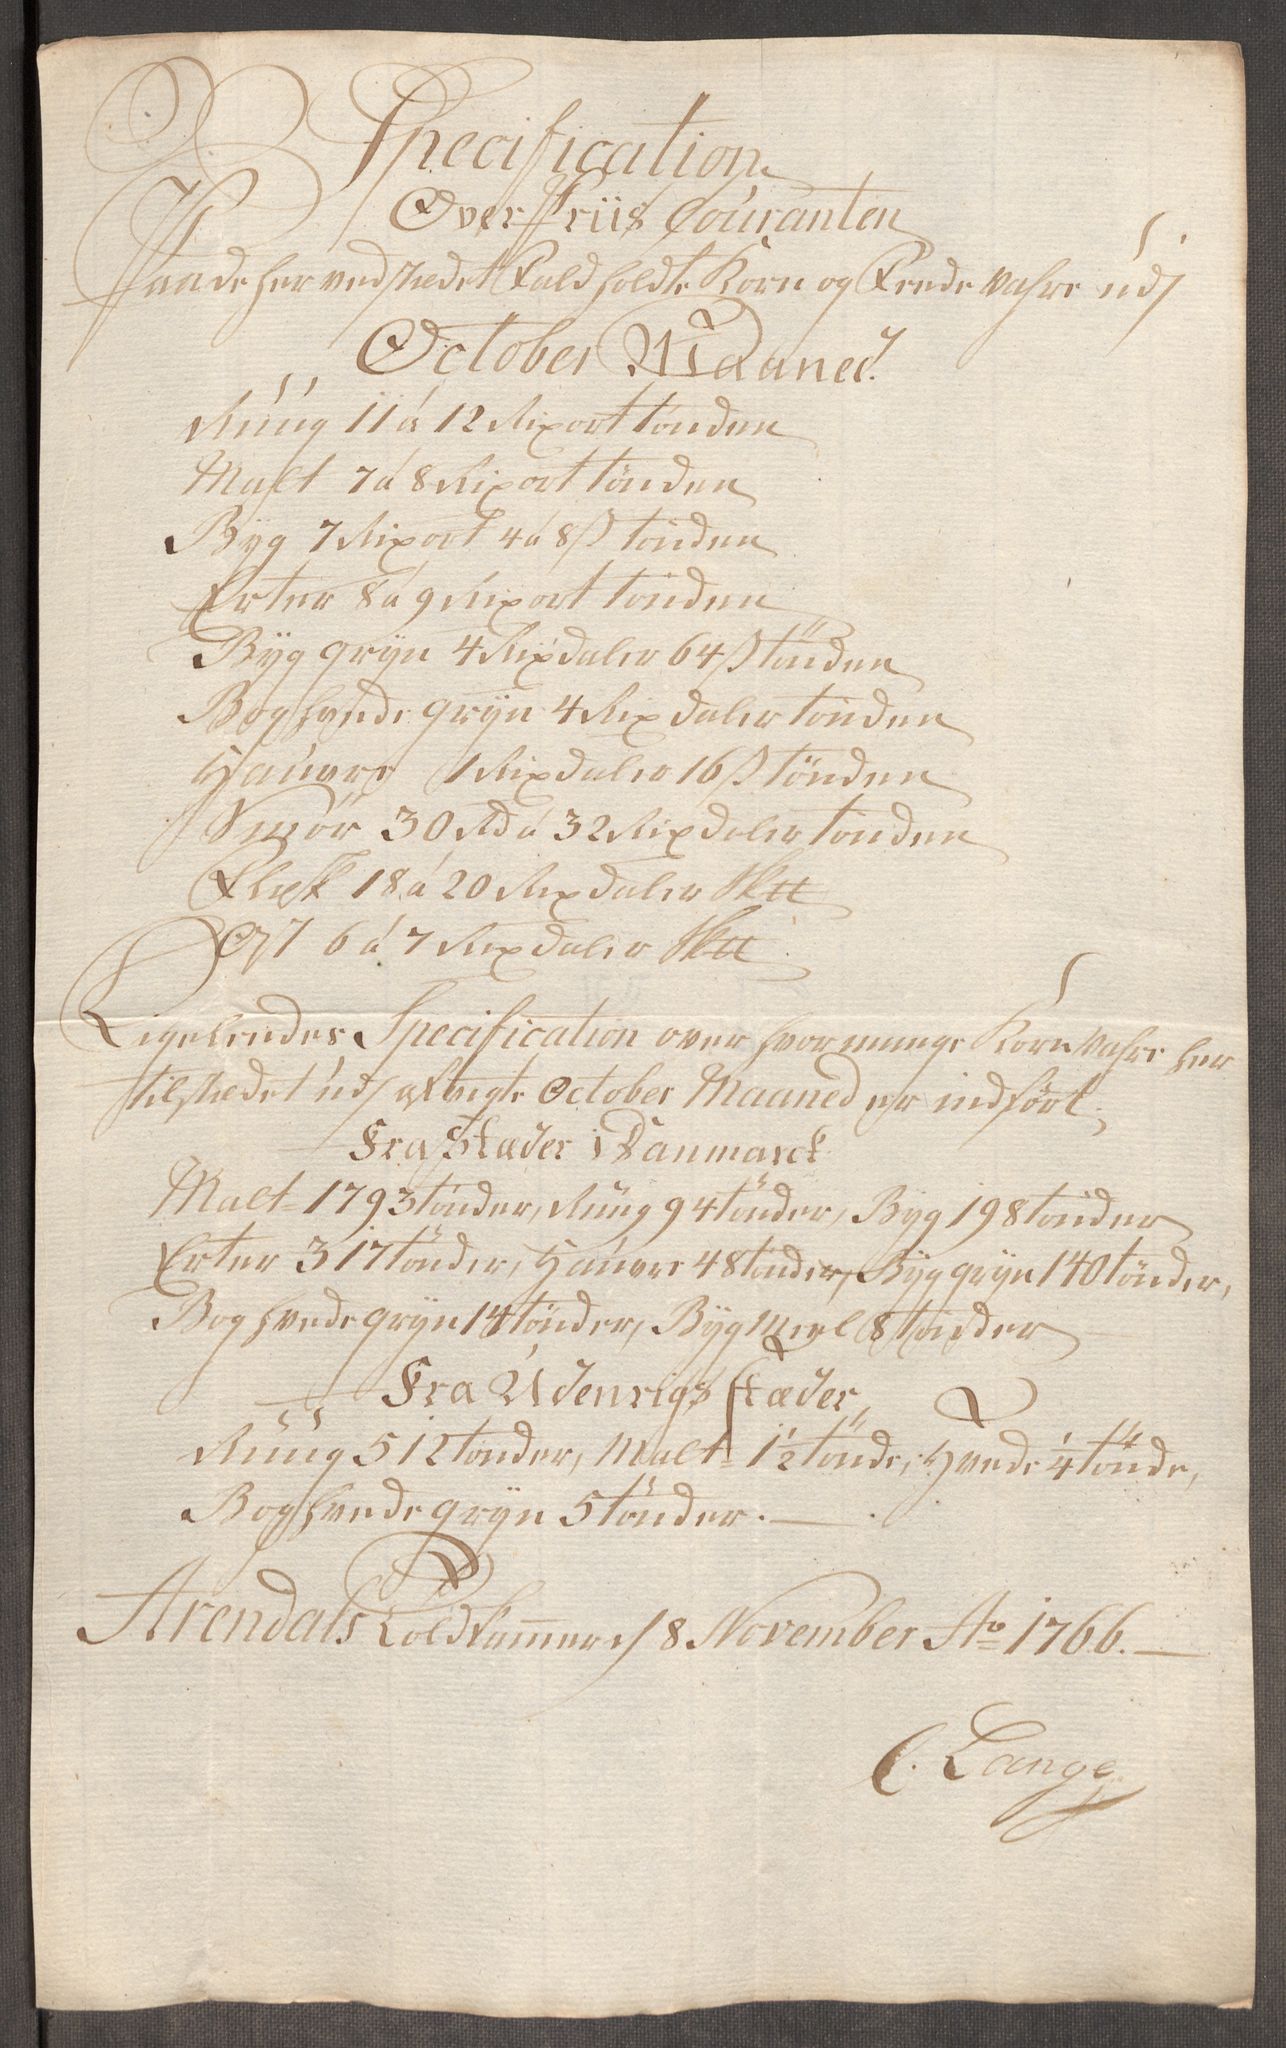 Specification
Over Priis Couranten
Paa de her ved Stedet Fald holdte Korn og Fede Vahre udj
October Maaned.
Rúúg 11 á 12 Rixort tönden
Malt 7 á 8 Rixort tönden
Byg 7 Rixort 4 á 8 ß tönden
Erter 8 á 9 Rixort tönden
Byg gryn 4 Rixdaler 64 ß tönden
Boghvede gryn 4 Rixdaler tönden
Haúvre 1 Rixdaler 16 ß tönden
Smör 30 Rd á 32 Rixdaler tönden
Flesk 18 á 20 Rixdaler Sktt
Ost 6 á 7 Rixdaler Sktt
Ligeledes Specification over hvor mange Korn Vahre her
til Stedet udj afvigte October Maaned er indfört.
Fra Stæder i Danmarck
Malt 1793 tönder, Rúúg 94 tönder, Byg 198 tönder
Erter 317 tönder, Haúvre 48 tönder, Byg gryn 140 tönder,
Boghvede gryn 14 tönder, Byg Meel 8 tönder
Fra Udenrigs stæder,
Rúúg 512 tönder, Malt 1½ tönde, Hvede ¼ tönde,
Boghvede gryn 5 tönder.
Arendals Toldkammer d 8 November Ao 1766.
C. Lange